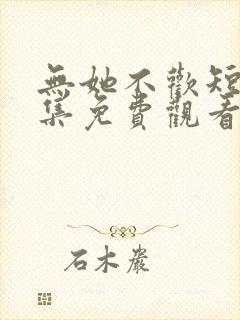 無她不歡短
集免費觀看
石木嚴